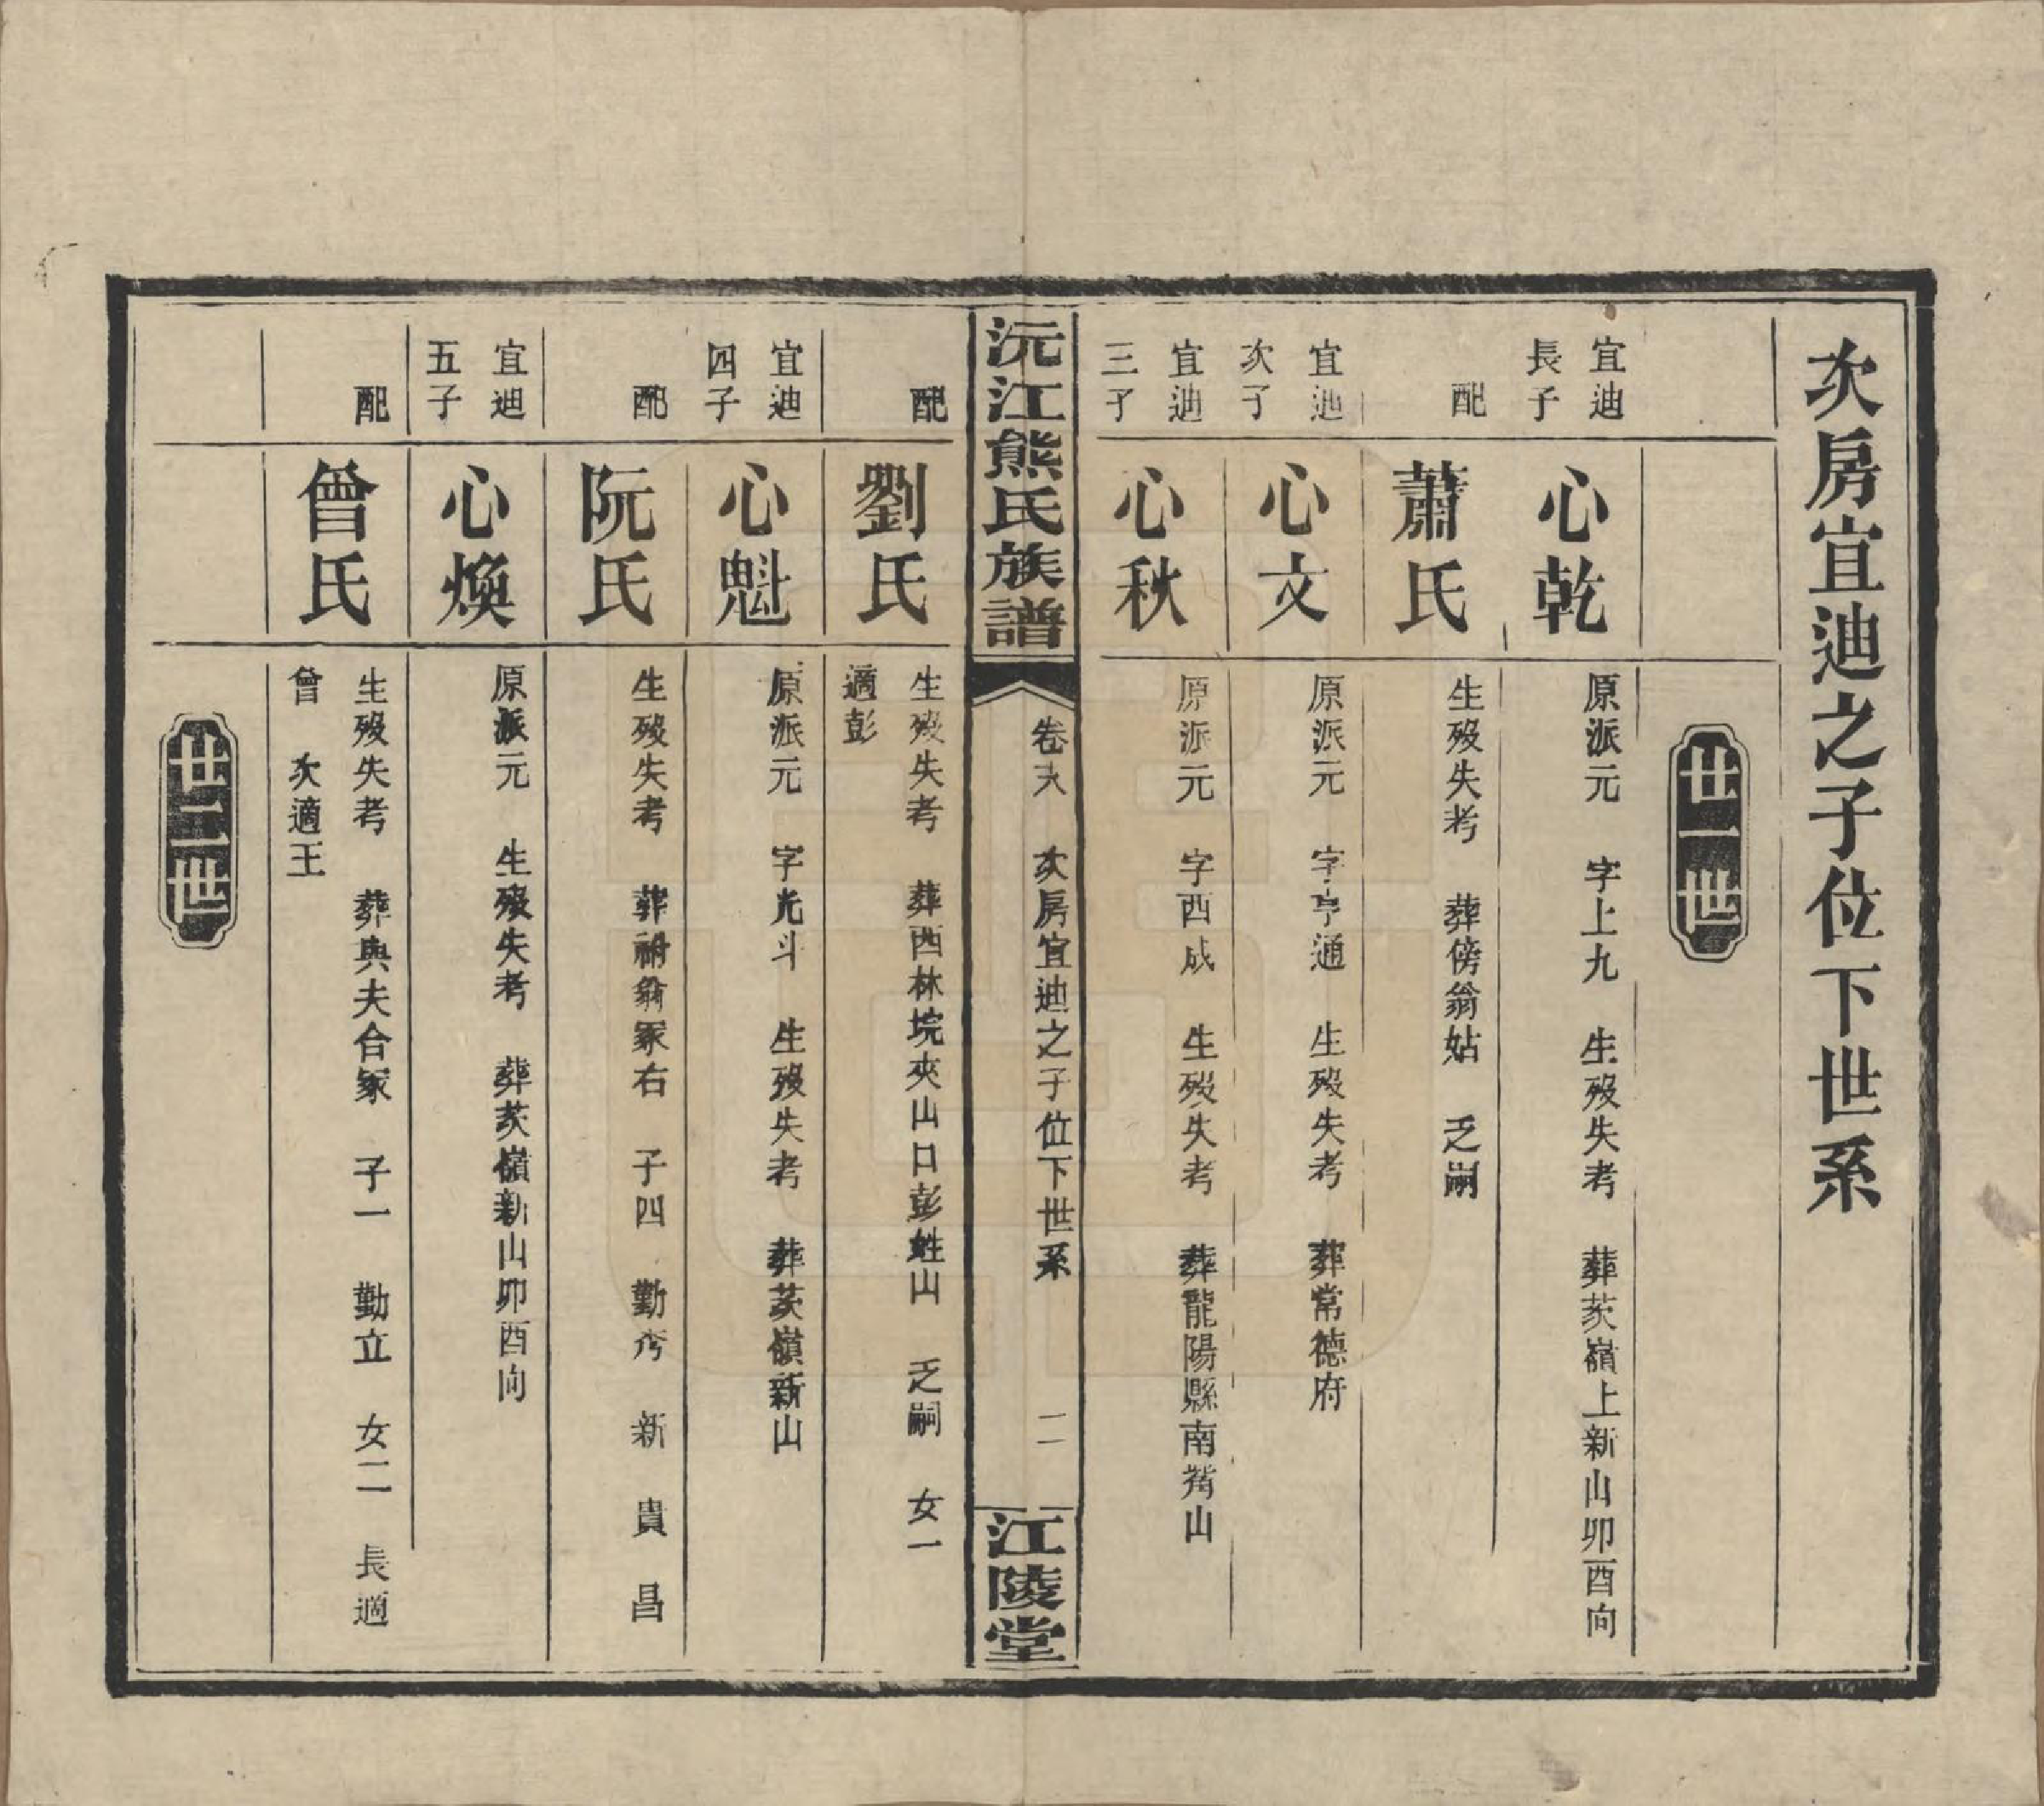 次房宜迪之子位下世系
廿一世
宜迪長子
心乾
原派元　字上九　生歿失考　葬茨嶺上新山卯酉向
配
蕭氏
生歿失考　葬傍翁姑　乏嗣
宜迪次子
心文
原派元　字亨通　生歿失考　葬常德府
宜迪三子
心秋
原派元　字西成　生歿失考　葬龍陽縣南觜山
沅江熊氏族譜
卷　次房宜迪之子位下世系　二
江陵堂
配
劉氏
生歿失考　葬西林垸夾山口彭姓山　乏嗣　女一
適彭
宜迪四子
心魁
原派元　字光斗　生歿失考　葬茨嶺新山
配
阮氏
生歿失考　葬祔翁冢右　子四　勤　新　貴　昌
宜迪五子
心煥
原派元　生歿失考　葬茨嶺新山卯酉向
配
曾氏
生歿失考　葬與夫合冢　子一　勤立　女二　長適
曾　次適王
廿二世